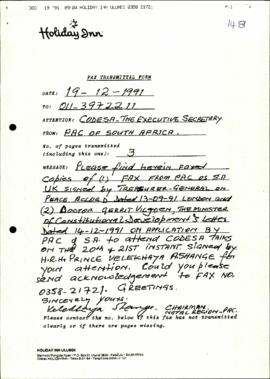 DEC 19 '91 09:04 HOLIDAY INN ULUNDI 0358 2172
P.1
148
Holiday Inn
FAX TRANSMITTAL FORM
DATE: 19-12-1991
TO: 011-3972211
ATTENTION: CODESA. THE EXECUTIVE SECRETARY
FROM: PAC OF SOUTH AFRICA.
No. of pages transmitted
(including this one): 3
MESSAGE: PLEASE find herein faxed
copies of (1) FAX FROM PAC OF S.A
UK SIGNED BY TREASURER-GENERAL ON
PEACE ACCORD DATED 13-09-91 LONDON and
(2) DOCTOR GERRIT VILJOEN, THE MINISTER
OF CONSTITUTIONAL DEVELOPMENT'S LETTER
DATED 14-12-1991 ON APPLICATION BY
PAC of SA. TO ATTEND CODESA TALKS
ON THE 20th & 21ST INSTANT SIGNED by
H.R.H PRINCE
for
your attention. Could you please
send acknowledgement to FAX NO.
0358-2172). GREETINGS.
SINCERELY YOURS.
CHAIRMAN
NATAL REGION-PAC.
Please contact the no. below if this fax has not transmitted
clearly or if there are pages missing.
HOLIDAY INN ULUNDI